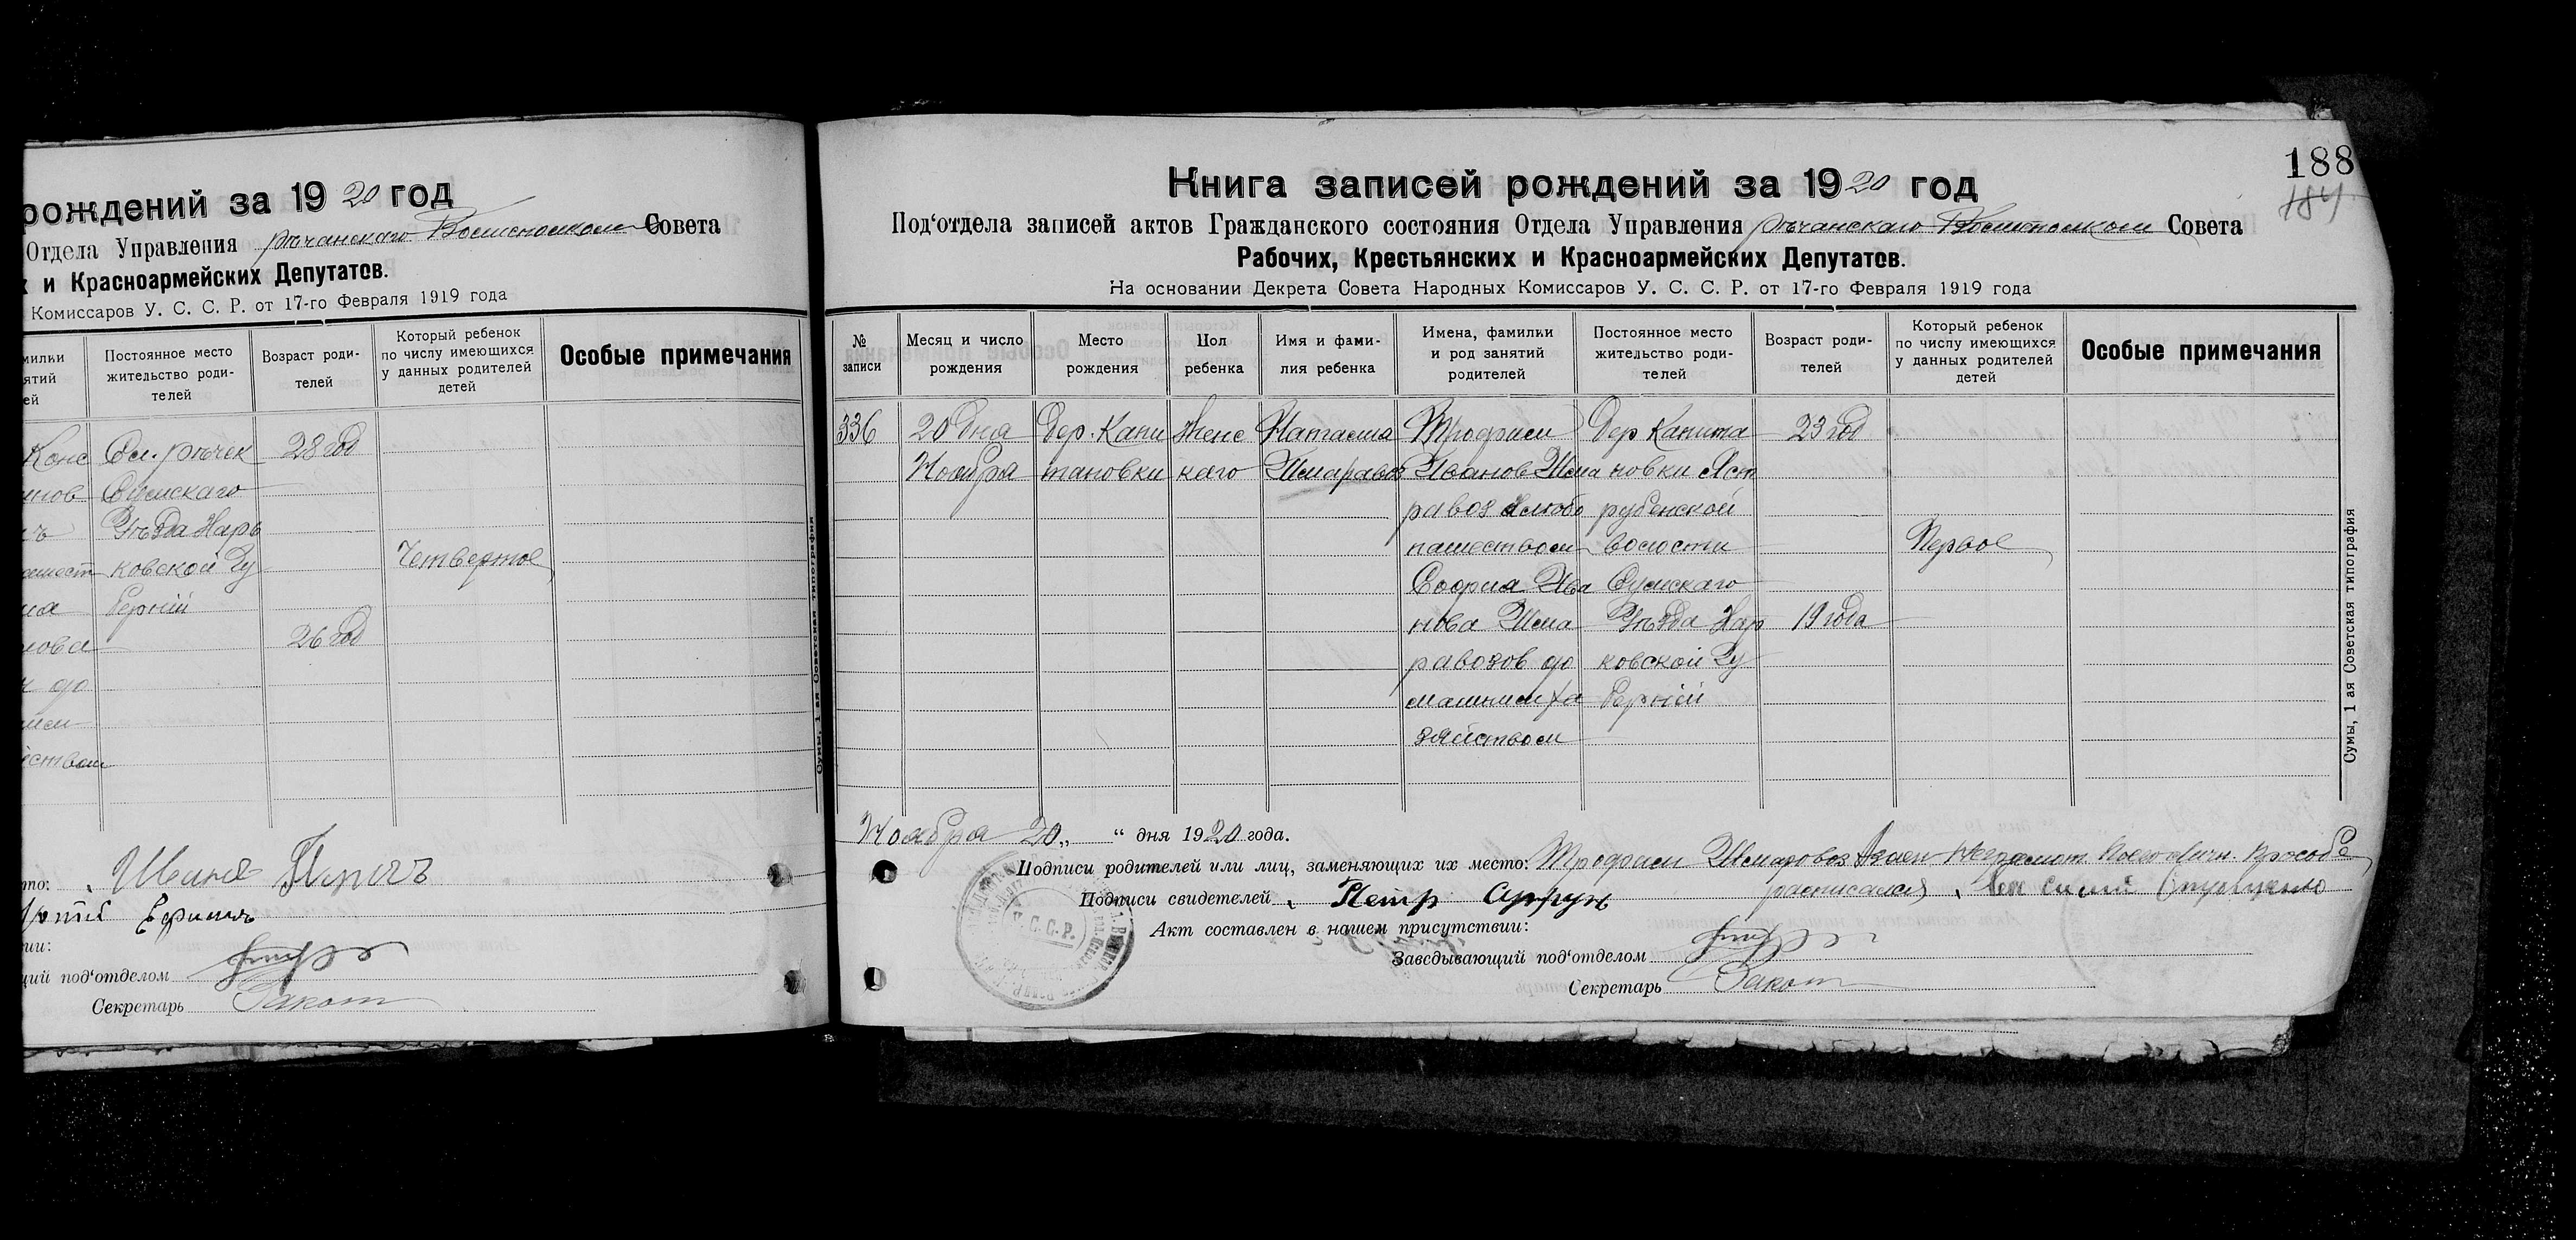 рождений за 1920 год
Отдела Управления Совета
х и Красноармейских Депутатов.
Комиссаров У. С. С. Р. от 17-го Февраля 1919 года
милки
ятий
ей
Постоянное место
жительство роди-
телей
Возраст роди-
телей
Который ребенок
по числу имеющихся
у данных родителей
детей
Особые примечания
Конс
Сл. Рѣчек
28 год
Сумскаго
Уѣзда Харь
ковской Гу
берніи
Четвертое
26 год
до
Ивань
Ефимъ
щий под'отделом
Секретарь
Сумы, 1 ая Советская типография
188
184
Книга записей рождений за 1920 год
Под'отдела записей актов Гражданского состояния Отдела Управления Рѣчанскаго Совета
Рабочих, Крестьянских и Красноармейских Депутатов.
На основании Декрета Совета Народных Комиссаров У. С. С. Р. от 17-го Февраля 1919 года
№
записи
Месяц и число
рождения
Место
рождения
Пол
ребенка
Имя и фами-
лия ребенка
Имена, фамилии
и род занятий
родителей
Постоянное место
жительство роди-
телей
Возраст роди-
телей
Который ребенок
по числу имеющихся
у данных родителей
детей
Особые примечания
336
20 дня
Ноября
Дер. Капи
тановки
Женс
каго
Наталия
Шмаравоз
Трофим
Иванов Шма
равоз хлебо
пашеством
София Ива
нова Шма
равозов до
машним хо
зяйством
Дер Капита
новки Яст
рубенской
волости
Сумскаго
Уѣзда Хар
ковской Гу
берніи
23 год
19 года
Первое
Ноября 20 „ “ дня 1920 года.
Подписи родителей или лиц, заменяющих их место: Трофим Шмаровоз
расписался
Подписи свидетелей Петр
Акт составлен в нашем присутствии:
Заведывающий под'отделом
Секретарь
С. С. Р.
Сумы, 1 ая Советская типография